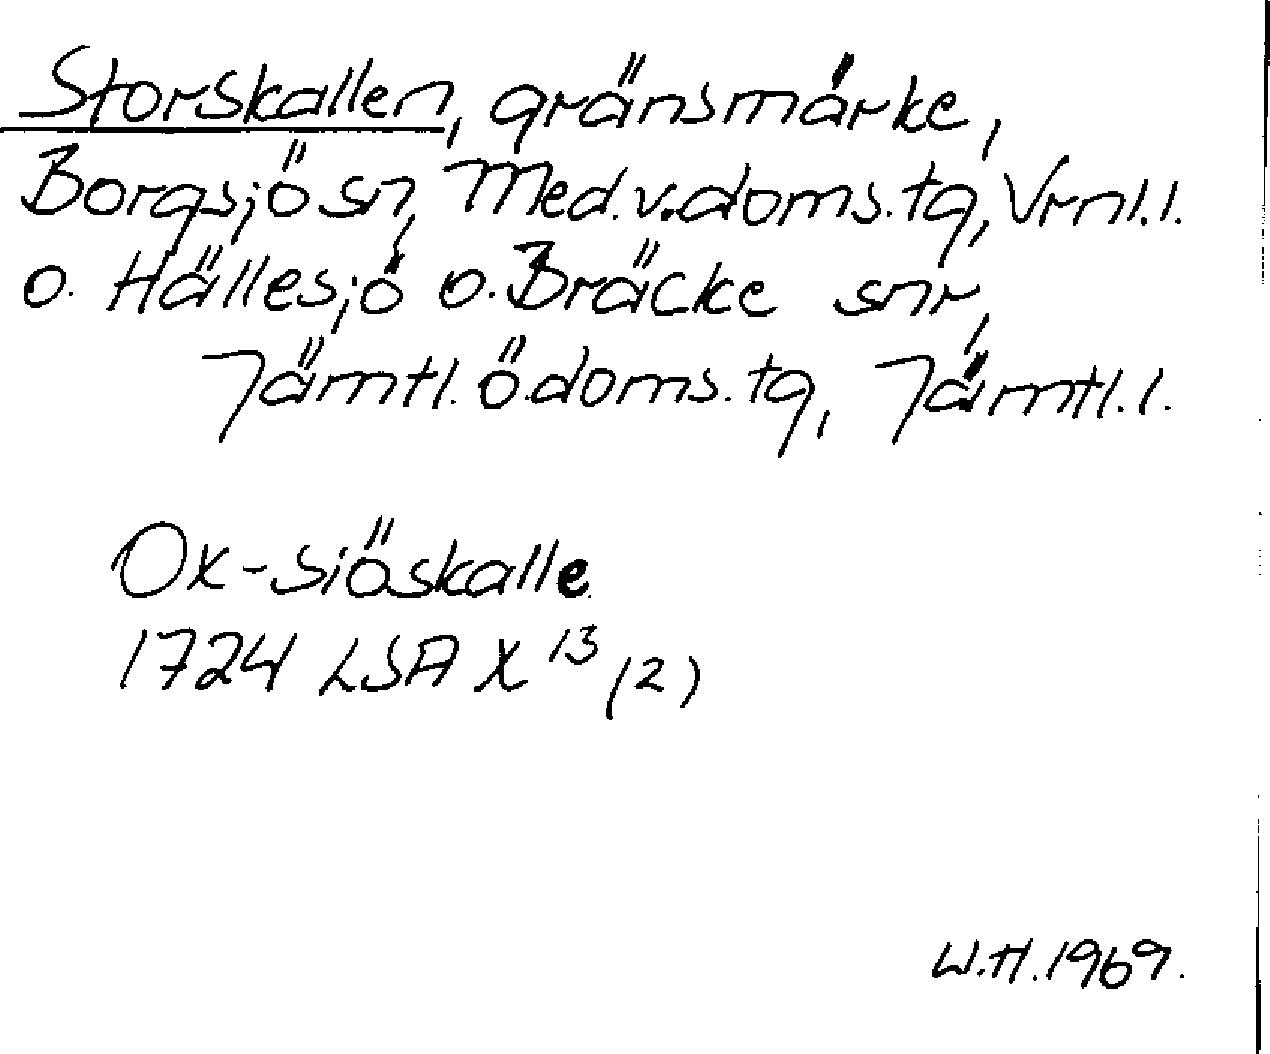 Storskallen, gränsmärke,
Borgsjö sn, Med. v. doms. tg, Vrnl. l.
o. Hällesjö o. Bräcke snr,
Jämtl. ö. doms. tg, Jämtl. l.
Ox-siöskalle
1724 LSA X 13 (2)
W.H. 1969.